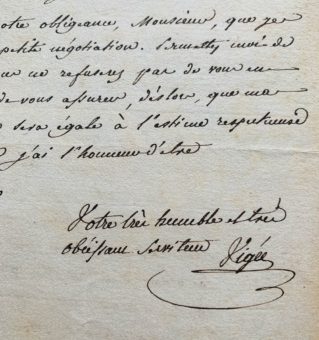 otre obligeance, Monsieur, que je
petite négociation. Permettez moi de
ne refuserez pas de vous en
de vous assurer, dèslors, que ma
sera égale à l'estime respectueuse
j'ai l'honneur d'être
Votre très humble et très
obéissant serviteur Vigée